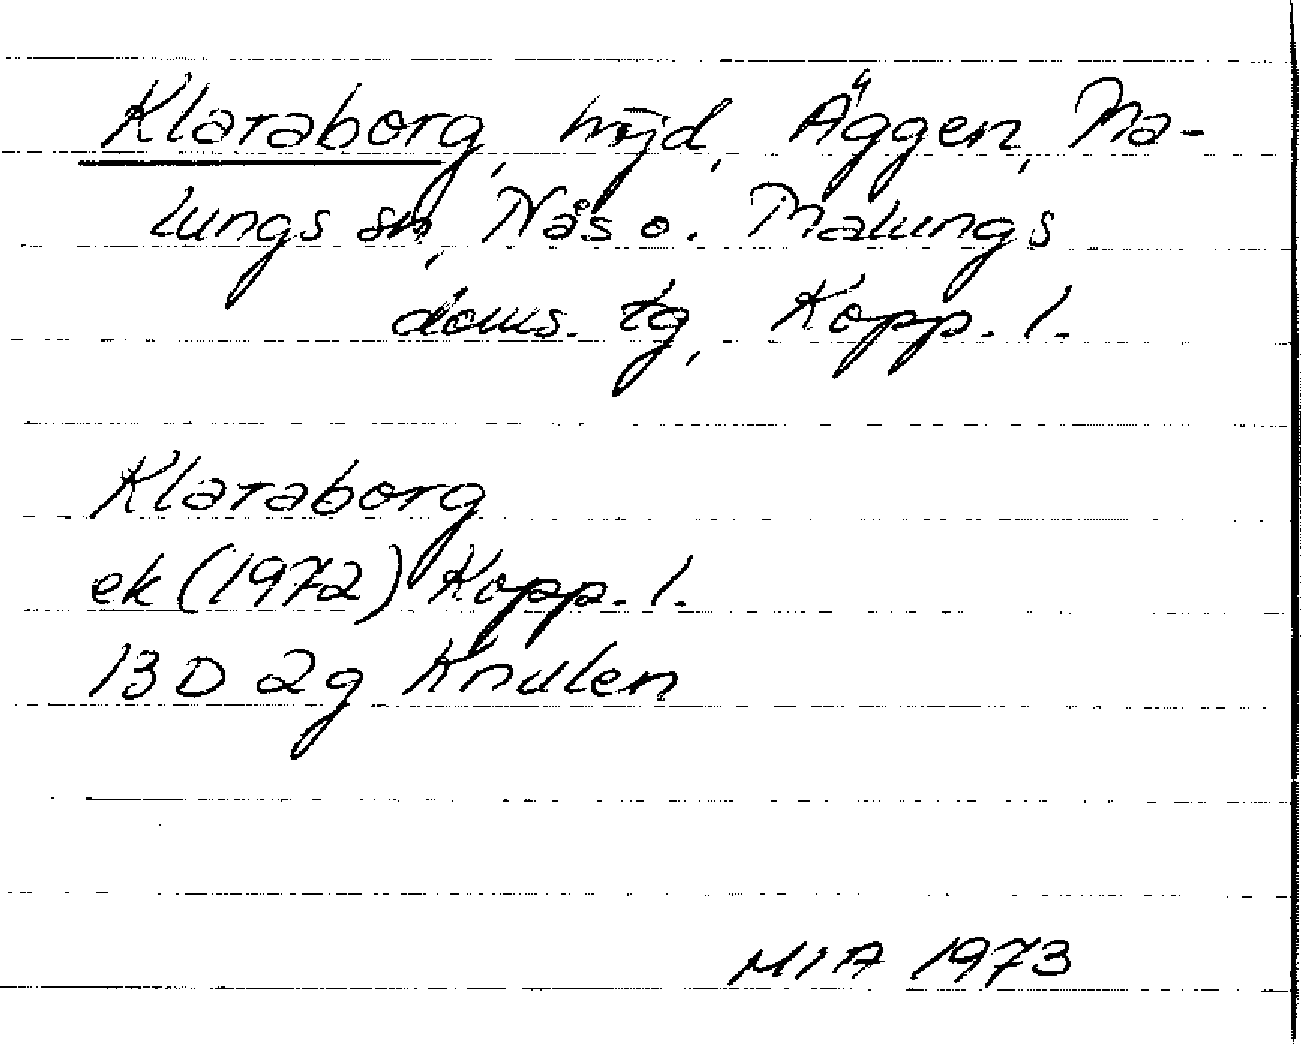 Klaraborg, höjd, Äggen, Ma-
lungs sn, Nås o. Malungs
doms. tg, Kopp. l.
Klaraborg
ek (1972) Kopp. l.
13 D 2g Knulen
MIA 1973